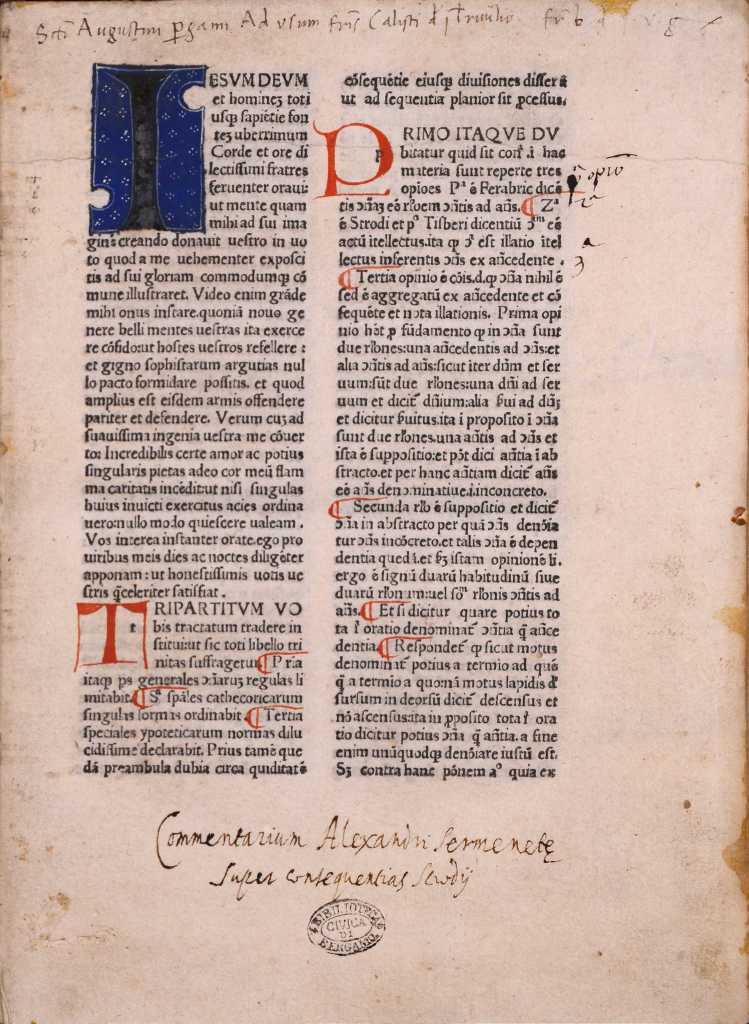 Scti Augustini pgami Ad usum fris Calisti
IESVM DEVM
et hominez toti
usq; sapiētie fon
tez uberrimum
Corde et ore di
lectissimi fratres
feruenter oraui
ut mente quam
mihi ad sui ima
ginē creando donauit uestro in uo
to quod a me uehementer exposci
tis ad sui gloriam commodumq; cō
mune illustraret. Video enim grāde
mihi onus instare. quoniā nouo ge
nere belli mentes uestras ita exerce
re cōfido: ut hostes uestros refellere:
et gigno sophistarum argutias nul
lo pacto formidare possitis. et quod
amplius est eisdem armis offendere
pariter et defendere. Verum cuz ad
suauissima ingenia uestra me cōuer
to: Incredibilis certe amor ac potius
singularis pietas adeo cor meū flam
ma caritatis incēdit: ut nisi singulas
huius inuicti exercitus acies ordina
uero: nullo modo quiescere ualeam.
Vos interea instanter orate. ego pro
uiribus meis dies ac noctes diligēter
apponam: ut honestissimis uotis ue
stris q̄celeriter satisfiat.
TRIPARTITVM VO
bis tractatum tradere in
stitui: ut sic toti libello tri
nitas suffragetur. Pria
itaq; ps generales ɔ̄niaruȝ regulas li
mitabit. Sa spāles cathecoricarum
singulas formas ordinabit. Tertia
speciales ypoteticarum normas dilu
cidissime declarabit. Prius tamē que
dā preambula dubia circa quiditatē
cōsequētie eiusq; diuisiones disserā
ut ad sequentia planior sit pcessus.
PRIMO ITAQVE DV
bitatur quid sit coñ. ī hac
materia sunt reperte tres
opioēs Pa ē Ferabric dicē
tis
ē Strodi et Tisberi dicentiū
actū itellectus. ita q ē est illatio itel
lectus inferentis ex añcedente.
Tertia opinio ē cōis. d. q nihil ē
sed ē aggregatū ex añcedente et cō
sequēte et nota illationis. Prima opi
nio fūdamento q in sunt
due una añcedentis ad et
alia ad añs: sicut iter dñm et ser
uum: sūt due una dñi ad ser
uum et dicit dñium: alia ad dñz
et dicitur ita i proposito i
sunt due una ad et
ista ē suppositio: et pōt dici i ab
stracto. et per hanc dicit añs
eē añs denominatiue. i. inconcreto.
Secunda ē suppositio et dicit
in abstracto per quā denōia
tur incōcreto. et talis ē depen
dentia qued i. et istam opinionē l.
ergo ē signū duarū habitudinū siue
duarū uel ad
añs. Et si dicitur quare potius to
ta oratio denominat q̄ añce
dentia. Respondet q sicut motus
denominat potius a termio ad quē
q̄ a termio a quo: nā motus lapidis
sursum in deorsū dicit descensus et
nō ascensus: ita in pposito tota ora
tio dicitur potius q̄ a fine
enim unūquodq; denōiare iustū est.
Sȝ contra hanc pōnem quia ex
opio
2a
3
Commentarium Alexandri Sermenetę
super consequentias Strodij
BIBLIOTECA
CIVICA
DI
BERGAMO